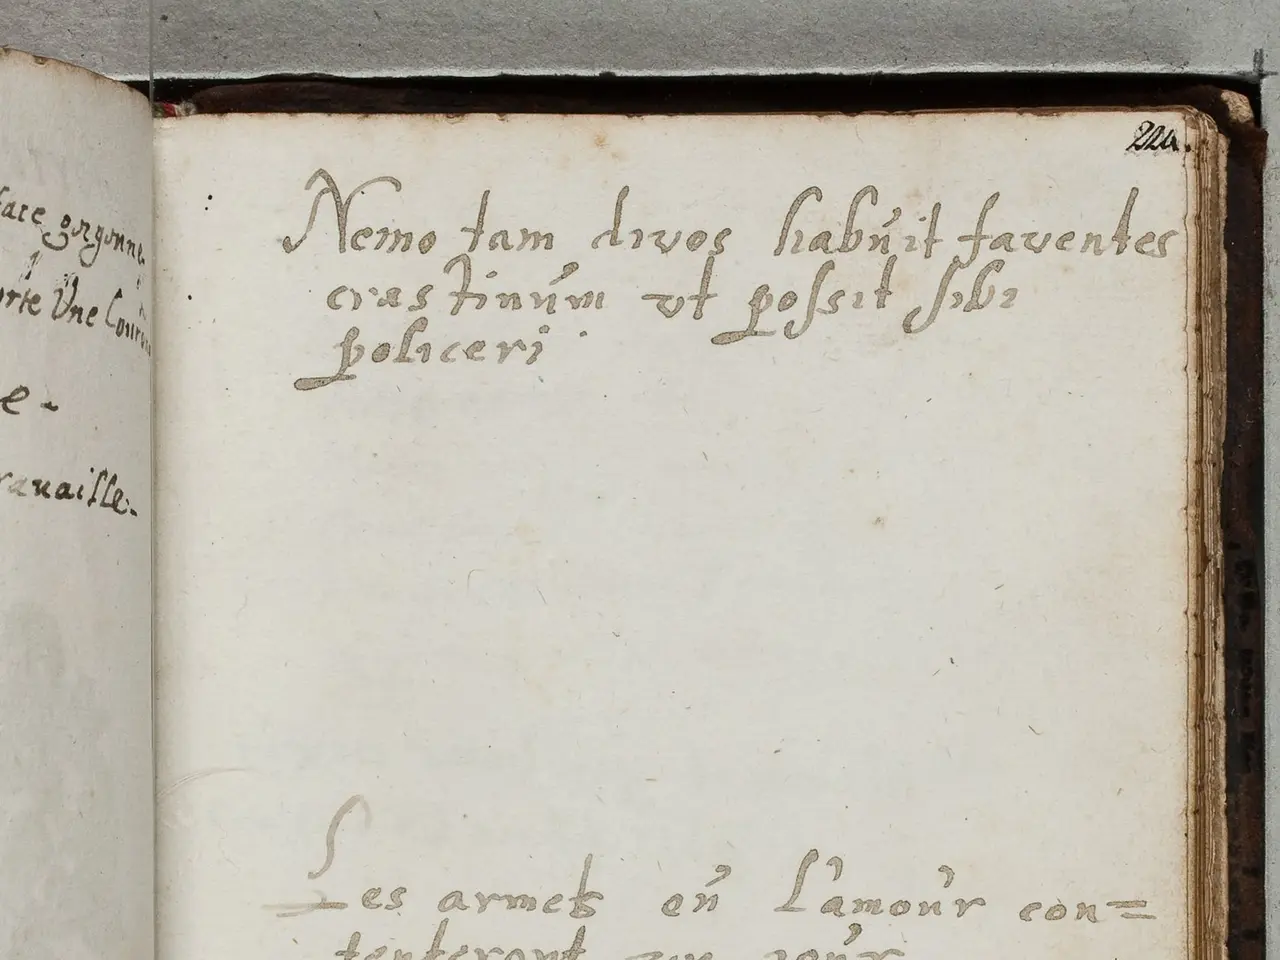 face gorgonne
porte Vne Couron
e -
travaille.
224.
Nemo tam divos habuit faventes
crastinum vt possit sibi
policeri
Les armets eu L'amour con=
tenteront